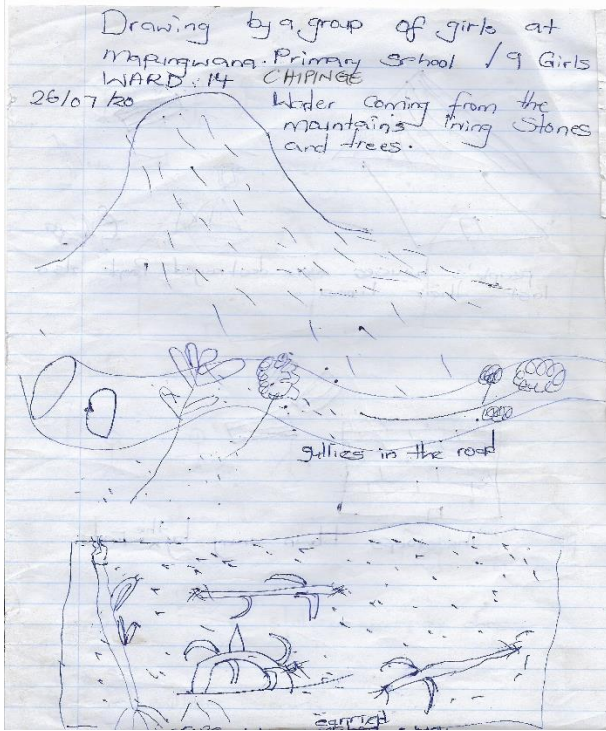 Drawing by a group of girls at
Mapungwana Primary School / 9 Girls
WARD 14 CHIPINGE
26/07/20
Water coming from the
mountains Stones
and trees.
gullies in the road
carried